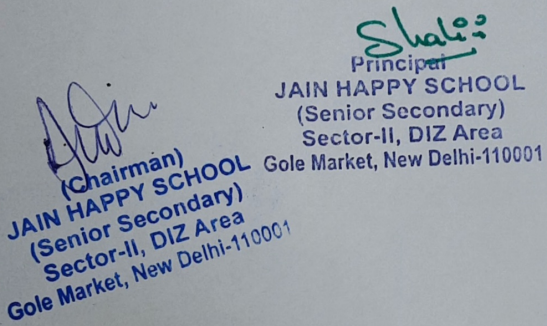 Principal
JAIN HAPPY SCHOOL
(Senior Secondary)
Sector-II, DIZ Area
Gole Market, New Delhi-110001
(Chairman)
JAIN HAPPY SCHOOL
(Senior Secondary)
Sector-II, DIZ Area
Gole Market, New Delhi-110001